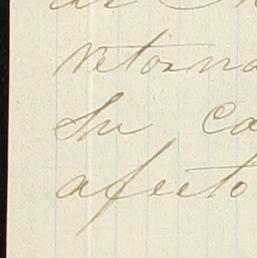 de
retorna
Su ca
afecto